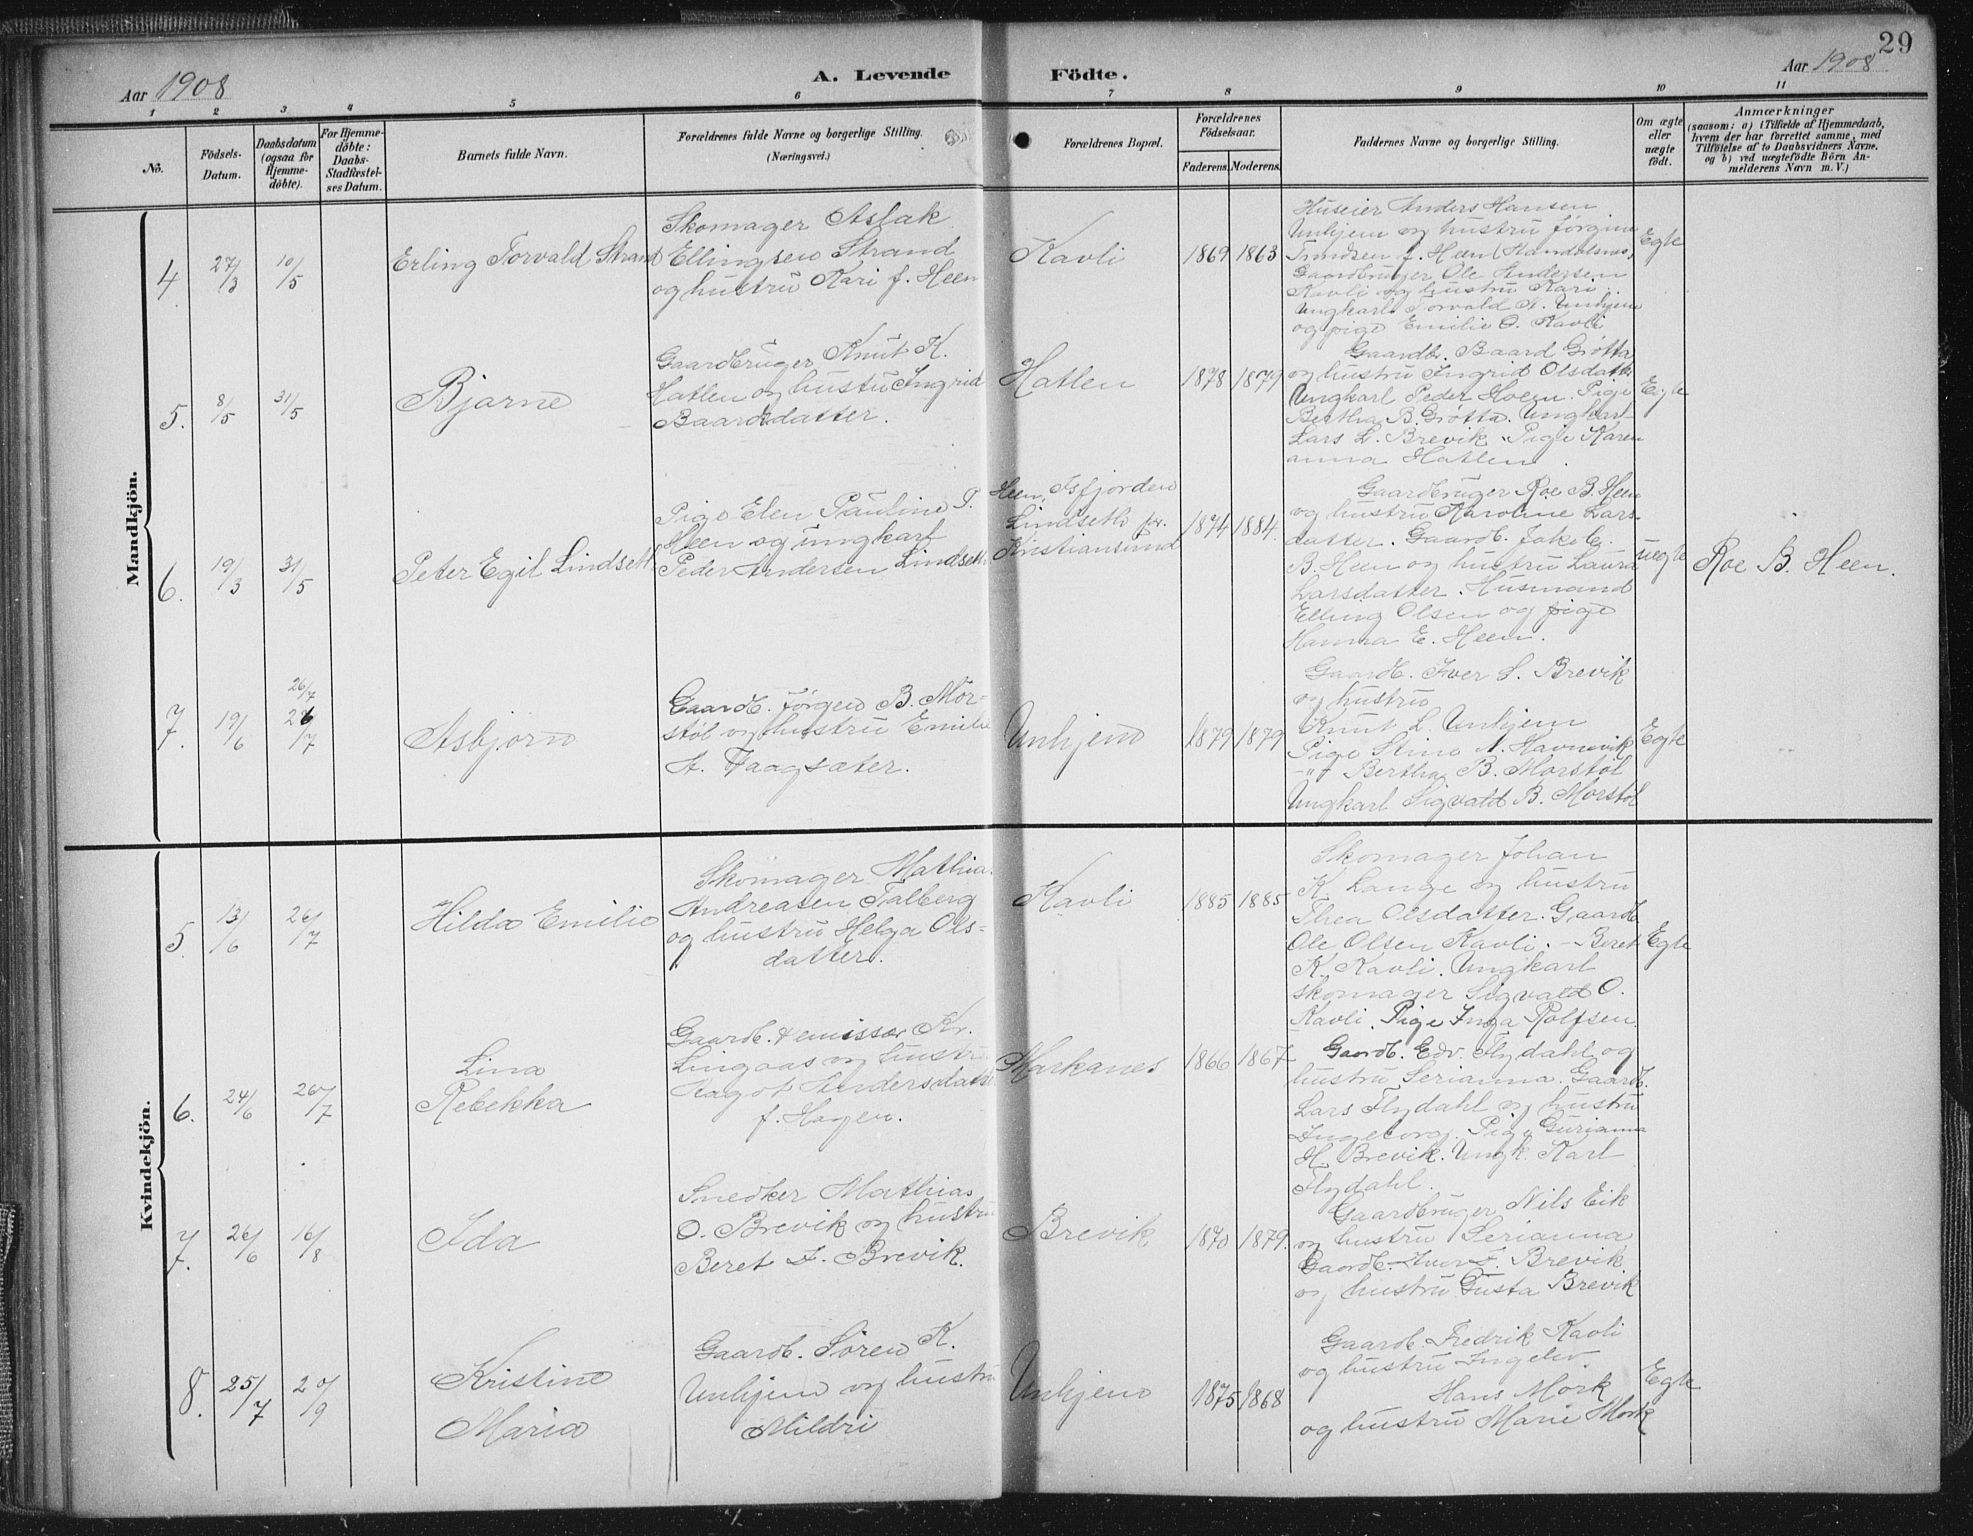 29
Aar 1908
A. Levende Födte.
Aar 1908
1 2 3 4 5 6 7 8 9 10 11
No.
Födsels-
Datum.
Daabsdatum
(ogsaa for
Hjemme-
döbte).
For Hjemme-
döbte:
Daabs-
Stadfæstel-
ses Datum.
Barnets fulde Navn.
Forældrenes fulde Navne og borgerlige Stilling.
(Næringsvei.)
Forældrenes Bopæl.
Forældrenes
Födselsaar.
Faderens. Moderens.
Faddernes Navne og borgerlige Stilling.
Om ægte
eller
uægte
født.
Anmærkninger
(saasom: a) i Tilfælde af Hjemmedaab,
hvem der har forrettet samme, med
Tilföielse af to Daabsvidners Navne,
og b) ved uægtefödte Börn An-
melderens Navn m. V.)
Mandkjön.
4
27/3
10/5
Erling Torvald Strand
Skomager Aslak
Ellingsen Strand
og hustru Kari f. Heen
Kavli
1869 1863
Huseier Anders Hansen
Unhjem og hustru Jørgine
f. Heen
Gaardbruger Ole Andersen
Kavli og hustru Kari.
Ungkarl Torvald A. Unhjem
og pige Emilie O. Kavli
Egte
5.
8/5
31/5
Bjarne
Gaardbruger Knut K.
Hatlen og hustru Ingrid
Baardsdatter.
Hatlen
1878 1879
Gaardbr. Baard Grøtta
og hustru Ingrid Olsdatt.
Ungkarl Peder Hoem. Pige
Bertha B. Grøtta. Ungkarl
Lars L. Brevik. Pige Karen
anna Hatlen.
Egte
6.
19/3
31/5
Peter Egil Lindseth
Pige Elen Pauline P.
Heen og ungkarl
Peder Andersen Lindseth
Heen, Isfjorden
Lindseth pr.
Kristiansund
1874 1884.
Gaardbruger Roe B. Heen
og hustru Karoline Lars-
datter. Gaardb. Jakob
B. Heen og hustru Laura
Larsdatter. Husmand
Elling Olsen og pige
Hanna E. Heen.
uegte
Roe B. Heen.
7.
19/6
26/7
26/7
Asbjørn
Gaardb. Jørgen B. Mor-
støl og hustru Emilie
A. Vaagsæter.
Unhjem
1879 1879
Gaardb. Iver S. Brevik
og hustru
Knut L. Unhjem
Pige Stine A. Havnevik
-"- Bertha B. Morstøl
Ungkarl Sigvald B. Morstøl
Egte
Kvindekjön.
5.
13/6
26/7
Hilda Emilie
Skomager Mathias
Andreasen Talberg
og hustru Helga Ols-
datter.
Kavli
1885 1885
Skomager Johan
K. Lange og hustru
Thea Olsdatter. Gaardb.
Ole Olsen Kavli. - Beret
K. Kavli. Ungkarl
skomager Sigvald O.
Kavli. Pige Inga Rolfsen.
Egte
6.
24/6
26/7
Lina
Rebekka
Gaardb. & emissær Kr.
Lingaas og hustru
Magot Andersdatter
f. Hagen.
Markanes
1866 1867
Gaardb. Edv. Flydahl og
hustru Serianna. Gaardb.
Lars Flydahl og hustru
Ingeborg. Pige Gurianna
H. Brevik. Ungk. Karl
Flydahl.
7.
26/6
16/8
Ida
Snedker Mathias
O. Brevik og hustru
Beret I. Brevik.
Brevik
1870 1879.
Gaardbruger Nils Eik
og hustru Serianna
Gaardb. Iver I. Brevik
og hustru Gusta Brevik
8.
25/7
20/9
Kristine
Maria
Gaardb. Sören K.
Unhjem og hustru
Mildri
Unhjem
1875 1868
Gaardb. Fredrik Kavli
og hustru Ingeliv.
Hans Mork
og hustru Marie Mork
Egte